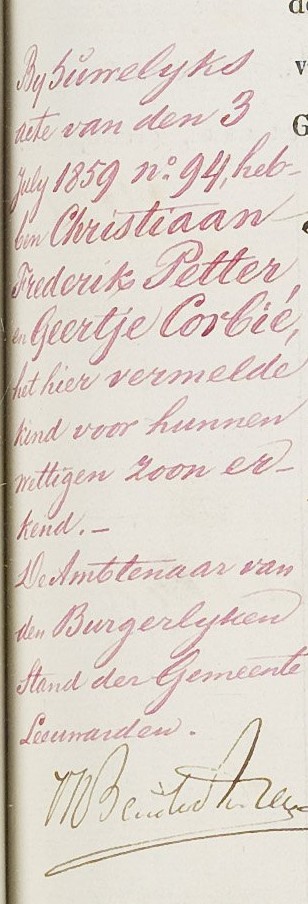 By huwelyks
acte van den 3
July 1859 no. 94, heb-
ben Christiaan
Frederik Petter,
en Geertje Corbié,
het hier vermelde
kind voor hunnen
wettigen zoon er-
kend. -
De Ambtenaar van
den Burgerlyken
Stand der Gemeente
Leeuwarden.